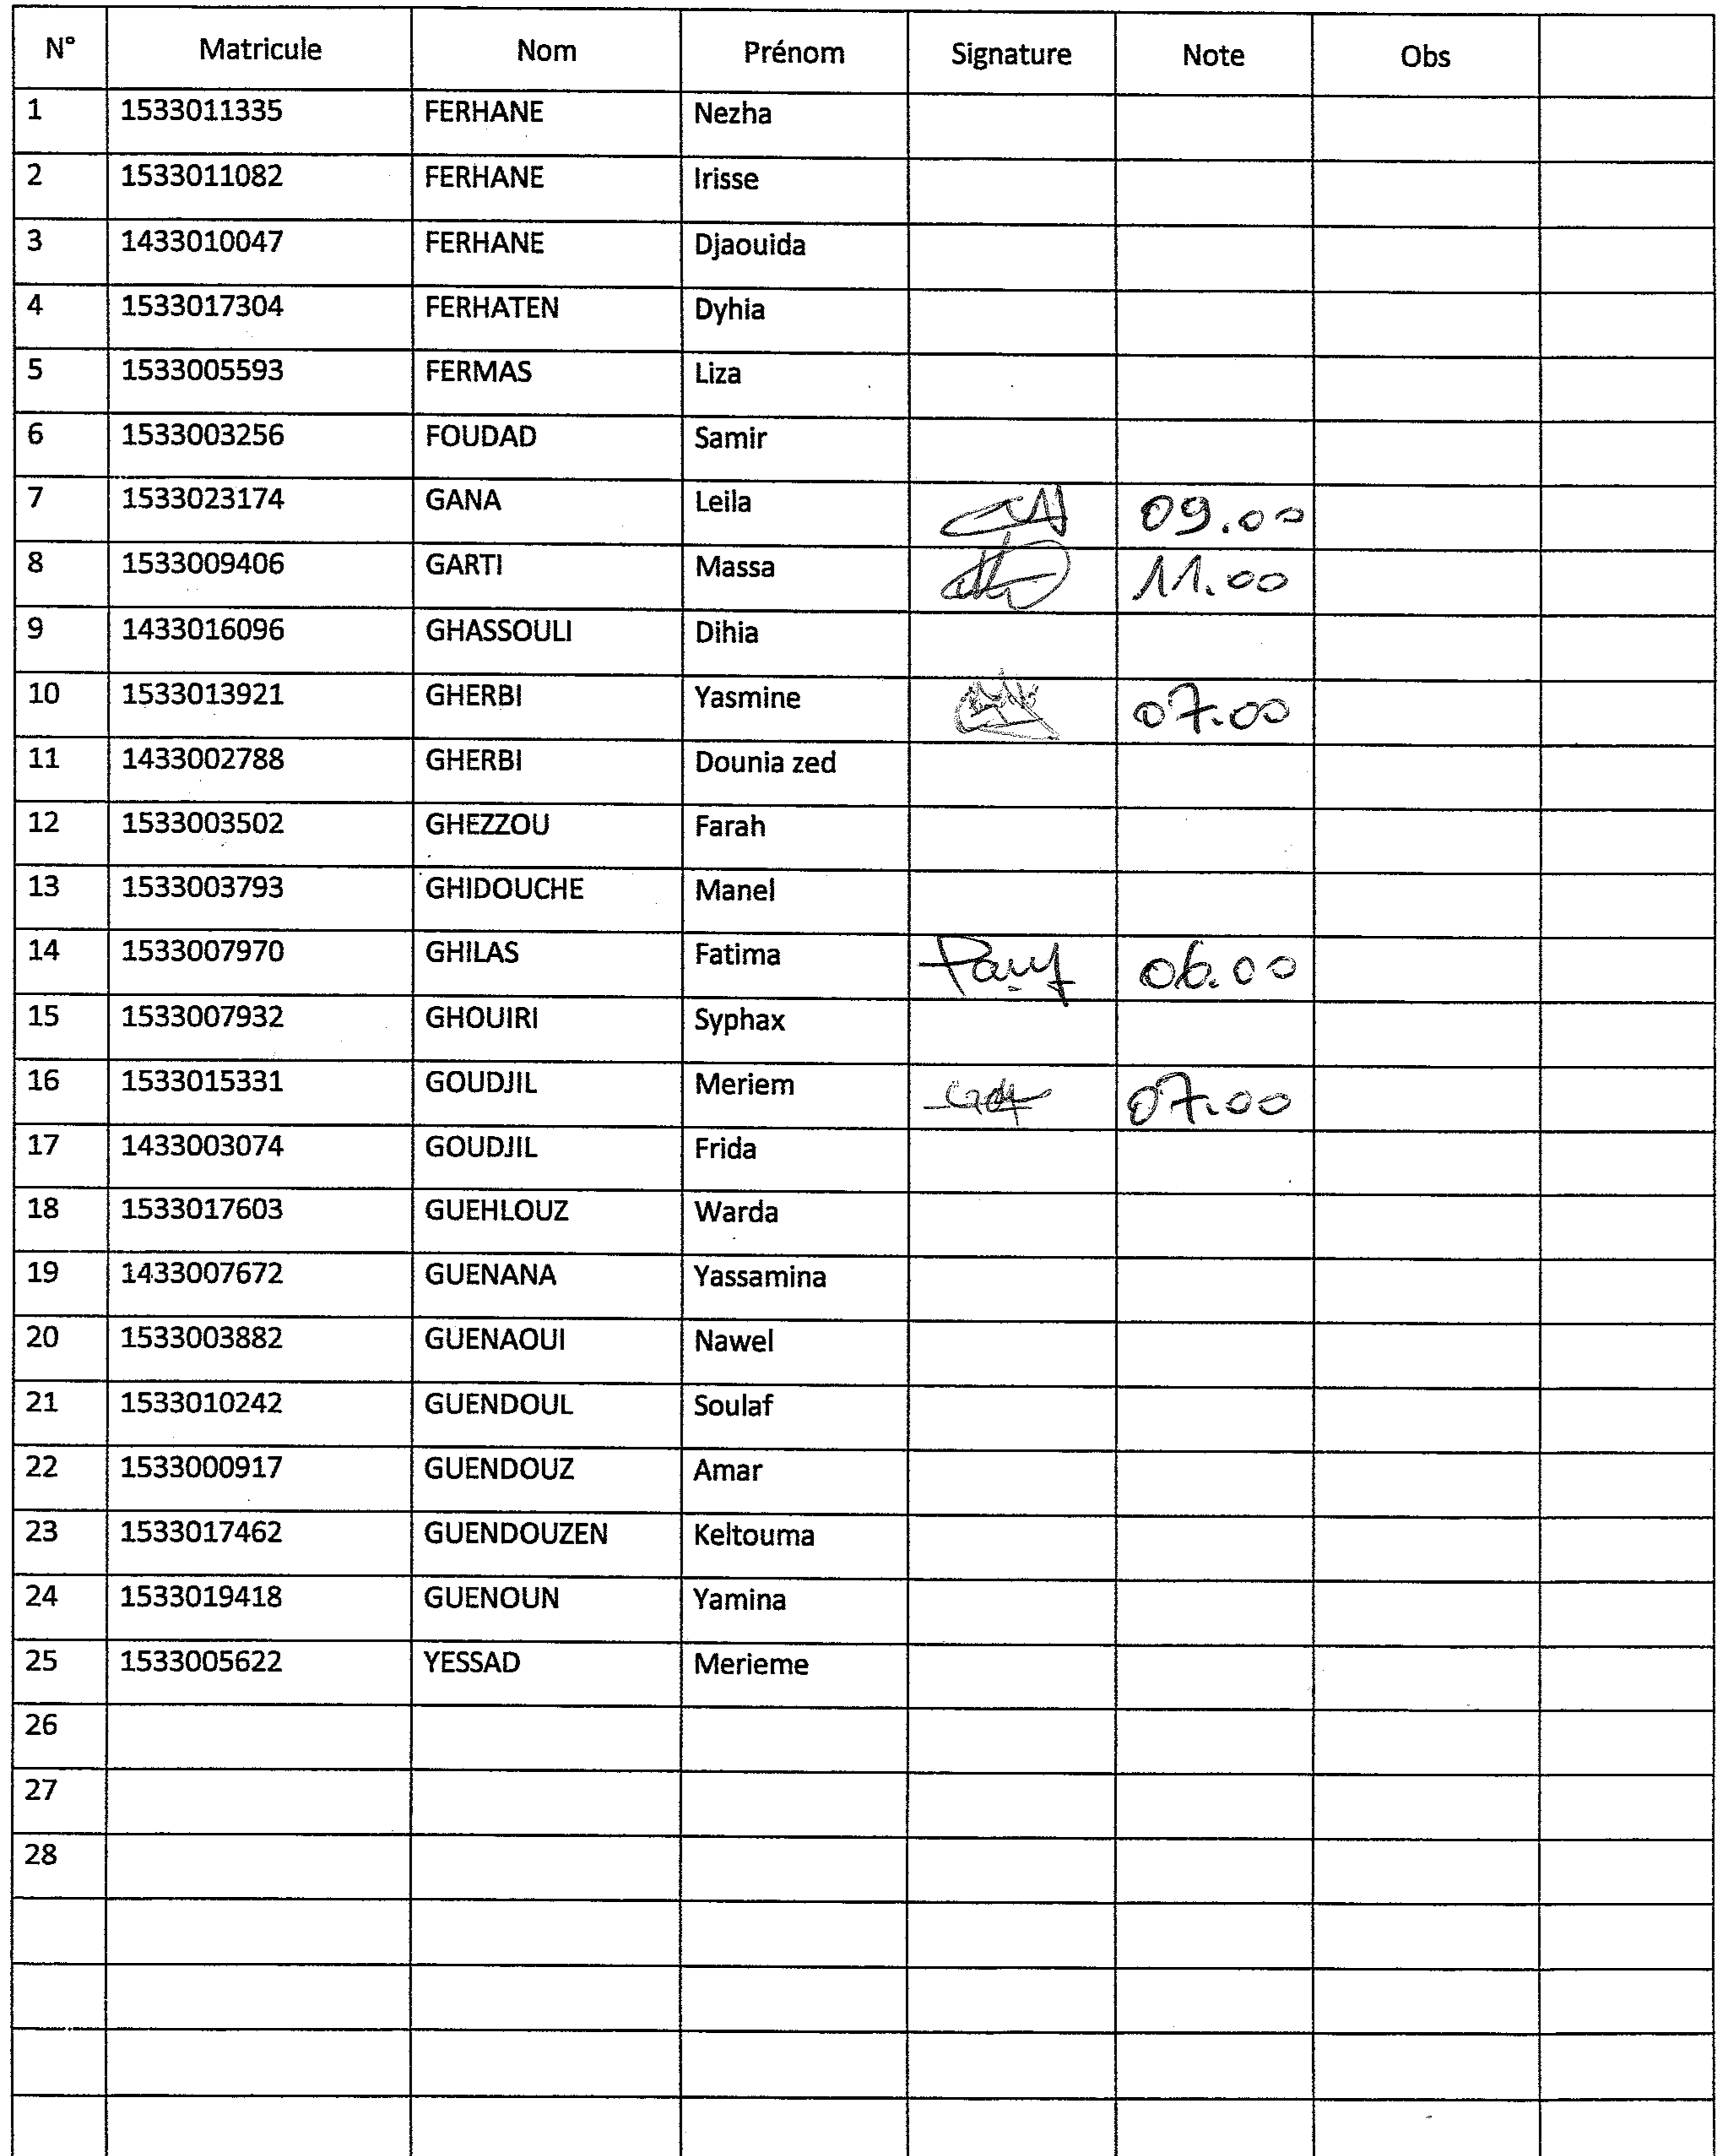 N° Matricule Nom Prénom Signature Note Obs
1 1533011335 FERHANE Nezha
2 1533011082 FERHANE Irisse
3 1433010047 FERHANE Djaouida
4 1533017304 FERHATEN Dyhia
5 1533005593 FERMAS Liza
6 1533003256 FOUDAD Samir
7 1533023174 GANA Leila 09.00
8 1533009406 GARTI Massa 11.00
9 1433016096 GHASSOULI Dihia
10 1533013921 GHERBI Yasmine 07.00
11 1433002788 GHERBI Dounia zed
12 1533003502 GHEZZOU Farah
13 1533003793 GHIDOUCHE Manel
14 1533007970 GHILAS Fatima 06.00
15 1533007932 GHOUIRI Syphax
16 1533015331 GOUDJIL Meriem 07.00
17 1433003074 GOUDJIL Frida
18 1533017603 GUEHLOUZ Warda
19 1433007672 GUENANA Yassamina
20 1533003882 GUENAOUI Nawel
21 1533010242 GUENDOUL Soulaf
22 1533000917 GUENDOUZ Amar
23 1533017462 GUENDOUZEN Keltouma
24 1533019418 GUENOUN Yamina
25 1533005622 YESSAD Merieme
26
27
28